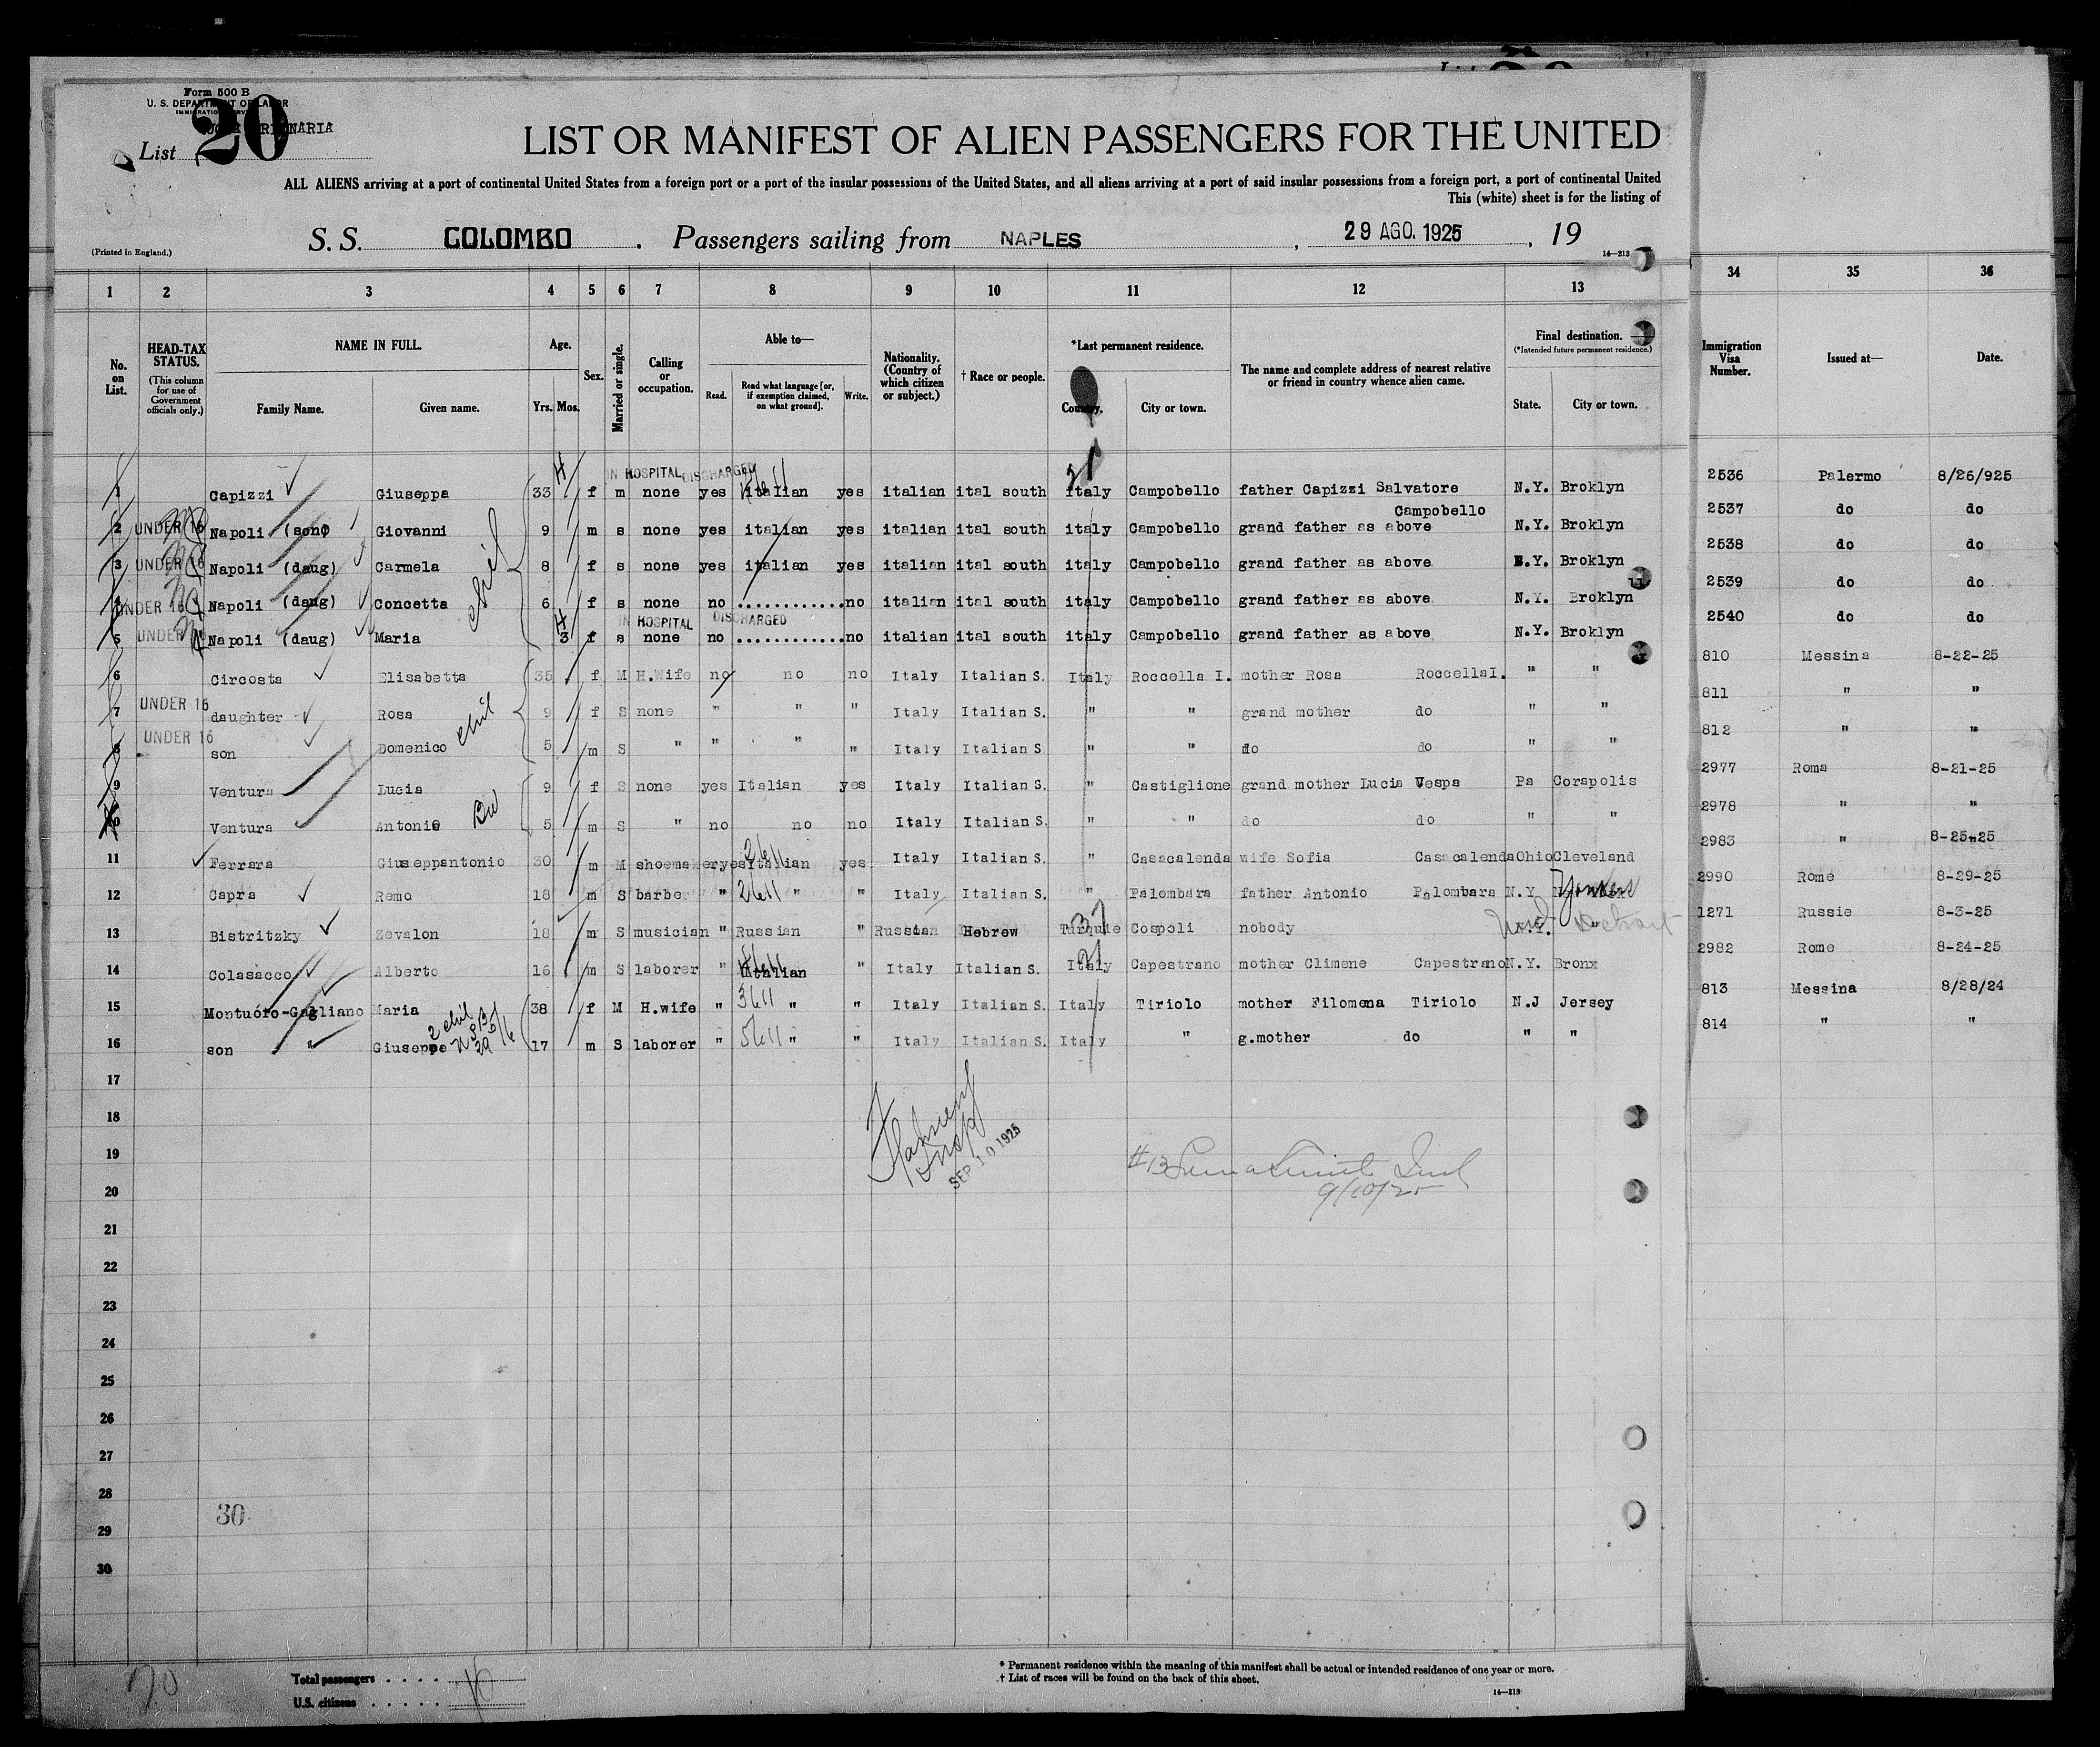 Form 500 B
U. S. DEPARTMENT OF LABOR
List 20
LIST OR MANIFEST OF ALIEN PASSENGERS FOR THE UNITED
ALL ALIENS arriving at a port of continental United States from a foreign port or a port of the insular possessions of the United States, and all aliens arriving at a port of said insular possessions from a foreign port, a port of continental United
This (white) sheet is for the listing of
(Printed in England.) S. S. COLOMBO . Passengers sailing from NAPLES , 29 AGO. 1925 , 19
14—213
1 2 3 4 5 6 7 8 9 10 11 12 13 34 35 36
No. on List. HEAD-TAX STATUS. (This column for use of Government officials only.) NAME IN FULL. Family Name. Given name. Age. Yrs. Mos. Sex. Married or single. Calling or occupation. Able to— Read. Read what language [or, if exemption claimed, on what ground]. Write. Nationality. (Country of which citizen or subject.) † Race or people. *Last permanent residence. Country. City or town. The name and complete address of nearest relative or friend in country whence alien came. Final destination. (*Intended future permanent residence.) State. City or town. Immigration Visa Number. Issued at— Date.
IN HOSPITAL DISCHARGED
1 Capizzi Giuseppa 33 f m none yes italian yes italian ital south italy Campobello father Capizzi Salvatore Campobello N.Y. Broklyn 2536 Palermo 8/26/925
2 UNDER 16 Napoli (son) Giovanni 9 m s none yes italian yes italian ital south italy Campobello grand father as above N.Y. Broklyn 2537 do do
3 UNDER 16 Napoli (daug) Carmela 8 f s none yes italian yes italian ital south italy Campobello grand father as above N.Y. Broklyn 2538 do do
4 UNDER 16 Napoli (daug) Concetta 6 f s none no ............ no italian ital south italy Campobello grand father as above N.Y. Broklyn 2539 do do
IN HOSPITAL DISCHARGED
5 UNDER Napoli (daug) Maria 3 f s none no ............ no italian ital south italy Campobello grand father as above N.Y. Broklyn 2540 do do
6 Circosta Elisabetta 35 f M H.Wife no no no Italy Italian S. Italy Roccella I. mother Rosa Roccella I. " " 810 Messina 8-22-25
7 UNDER 16 daughter Rosa 9 f S none " " " Italy Italian S. " " grand mother do " " 811 " "
8 UNDER 16 son Domenico 5 m S " " " " Italy Italian S " " do do " " 812 " "
9 Ventura Lucia 9 f S none yes Italian yes Italy Italian S. " Castiglione grand mother Lucia Vespa Pa Corapolis 2977 Roma 8-21-25
10 Ventura Antonio 5 m S " no no no Italy Italian S. " " do do " " 2978 " "
11 Ferrara Giuseppantonio 30 m M shoemaker yes Italian yes Italy Italian S. " Casacalenda wife Sofia Casacalenda Ohio Cleveland 2983 " 8-25-25
12 Capra Remo 18 m S barber " 2611 " " Italy Italian S. " Palombara father Antonio Palombara N.Y Yonkers 2990 Rome 8-29-25
13 Bistritzky Zevalon 18 m S musician " Russian " Russian Hebrew Turquie Cospoli nobody N.Y. Detroit 1271 Russie 8-3-25
14 Colasacco Alberto 16 m S laborer " Italian " Italy Italian S. Italy Capestrano mother Climene Capestrano N.Y. Bronx 2982 Rome 8-24-25
15 Montuóro-Gagliano Maria 38 f M H.wife " 3611 " " Italy Italian S. Italy Tiriolo mother Filomena Tiriolo N.J Jersey 813 Messina 8/28/24
16 son Giuseppe 17 m S laborer " 5611 " " Italy Italian S. Italy " g.mother do " " 814 " "
17
18
19
20
SEP 10 1925
#13
9/10/25
21
22
23
24
25
26
27
28
29
30
30
Total passengers . . . .
U.S. citizens . . . . .
* Permanent residence within the meaning of this manifest shall be actual or intended residence of one year or more.
† List of races will be found on the back of this sheet.
14—213